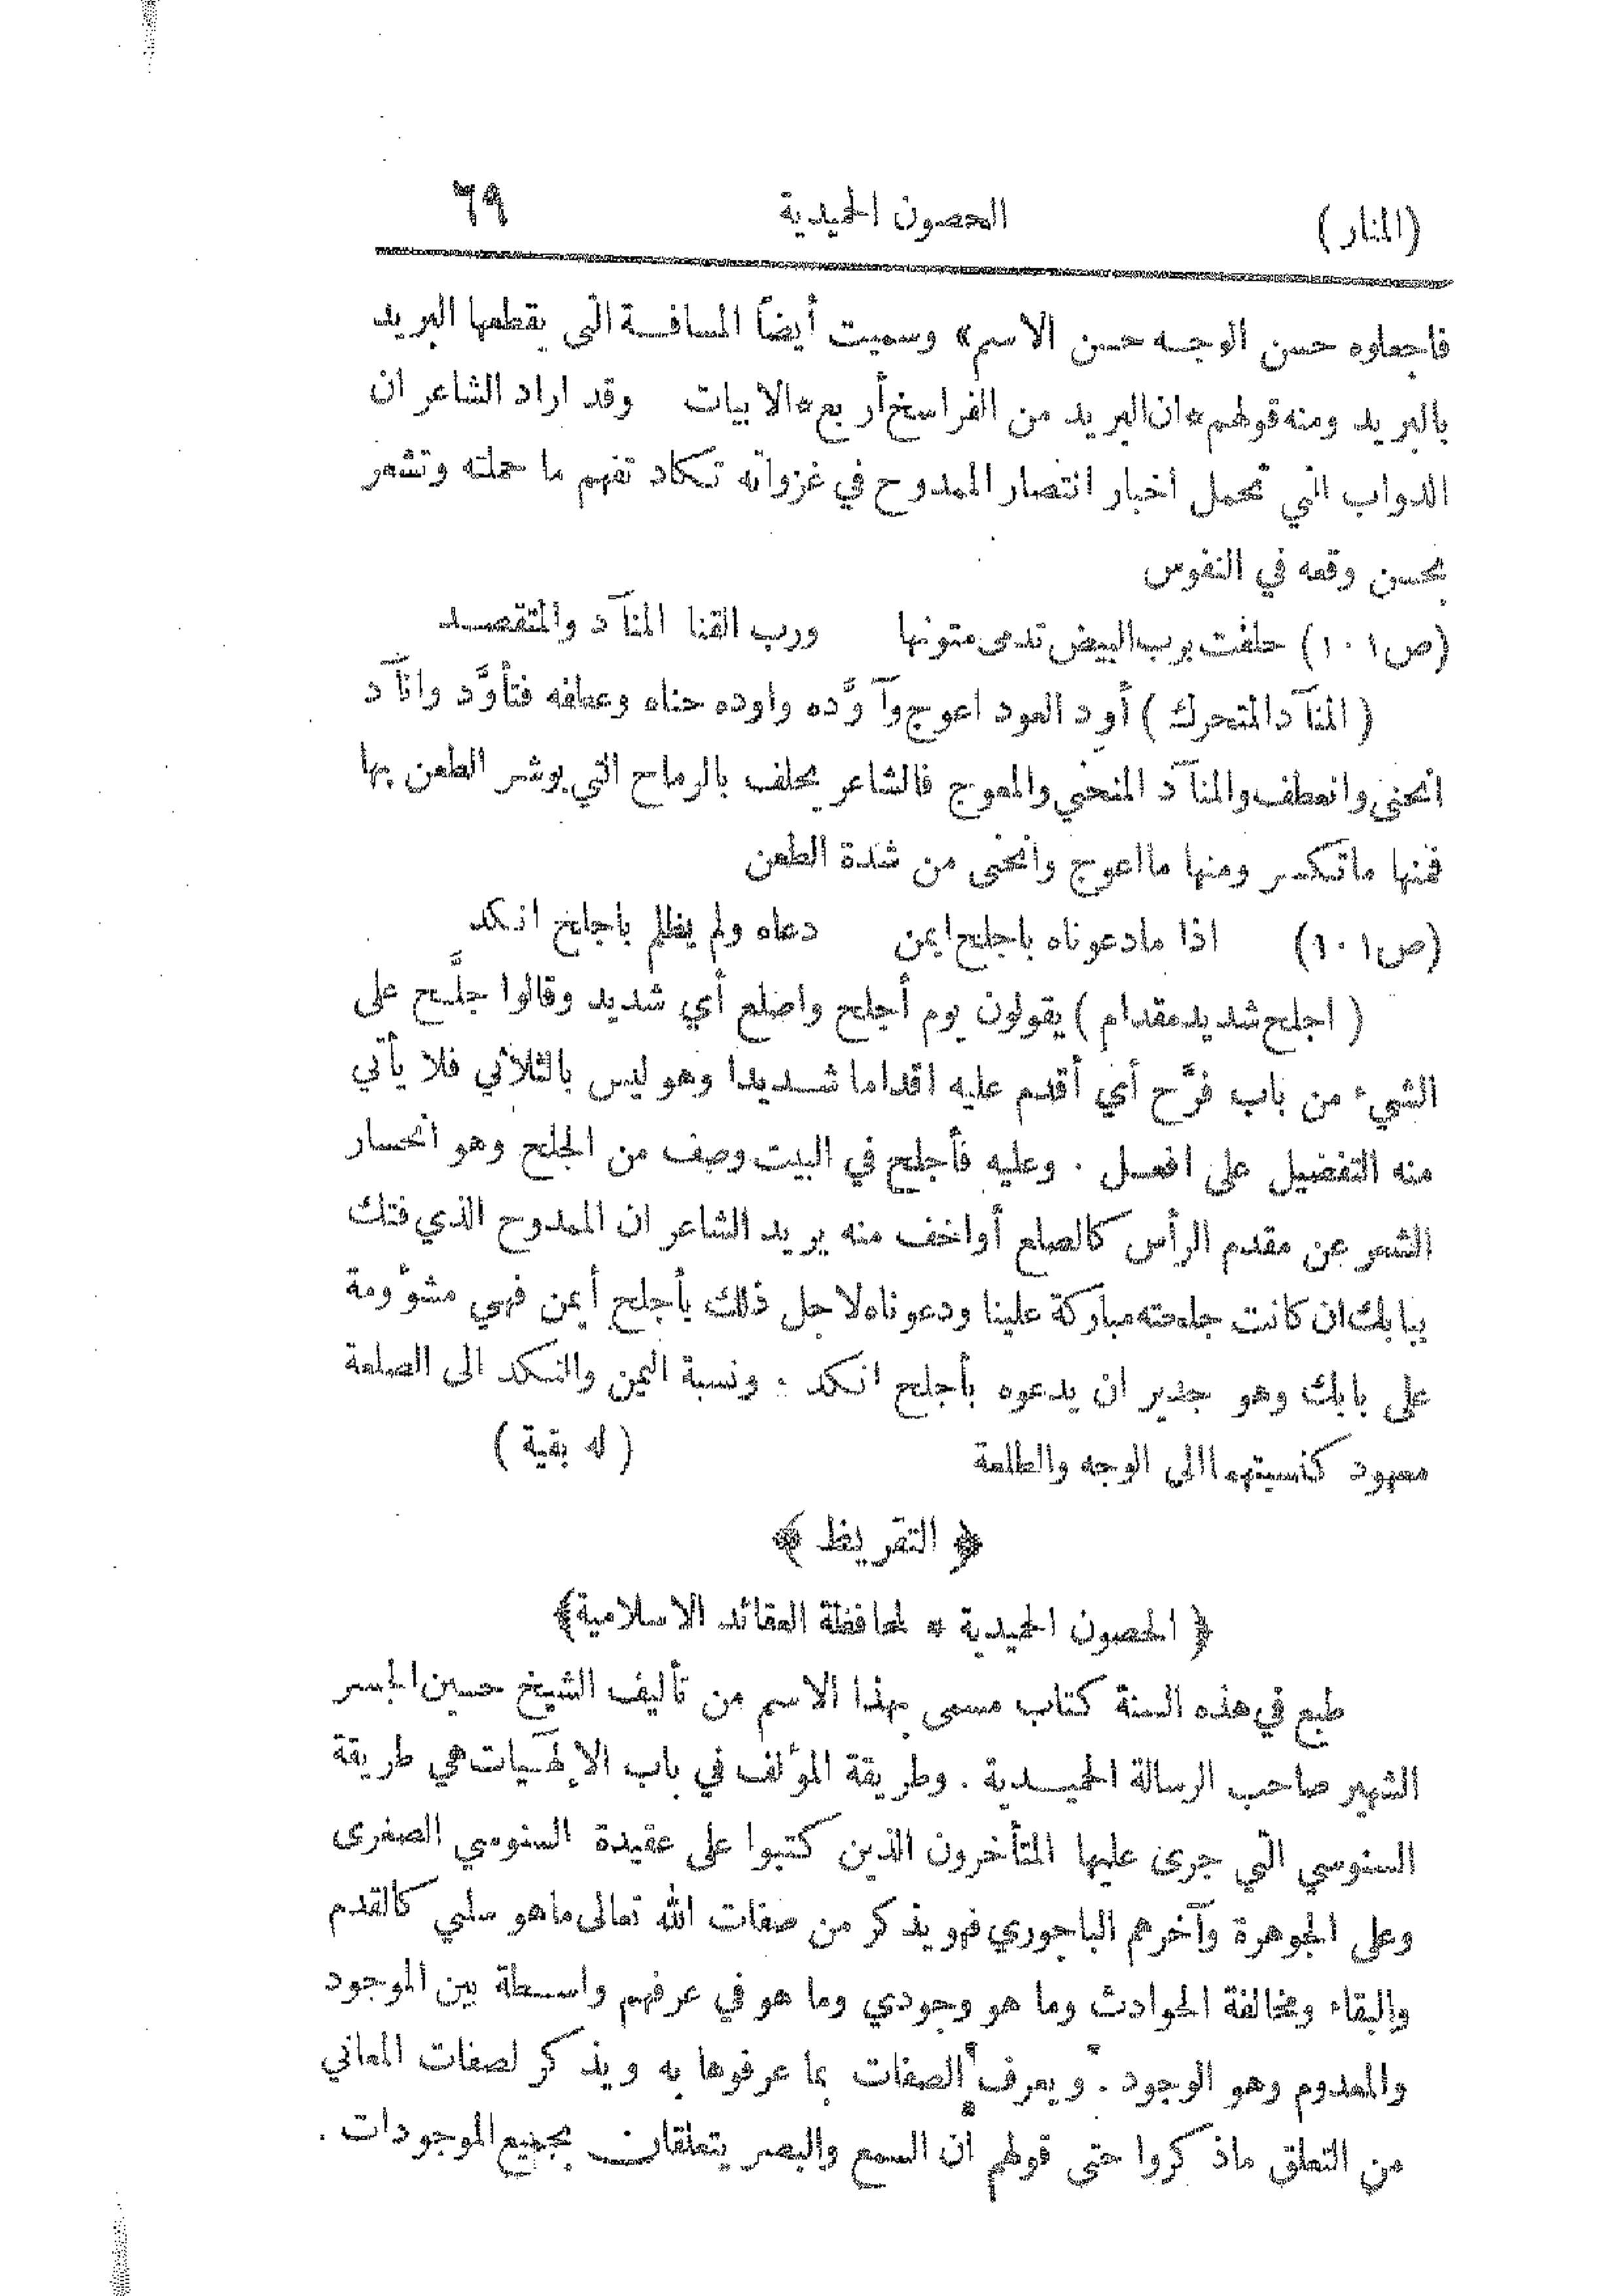 (المنار) الحصون الحميدية ٦٩
فاجعلوه حسن الوجه حسن الاسم» وسميت أيضاً المسافة التي يقطعها البريد
بالبريد ومنه قولهم * ان البريد من الفراسخ أربع * الابيات وقد اراد الشاعر ان
الدواب التي تحمل اخبار انتصار الممدوح في غزواته تكاد تفهم ما حملته وتشعر
بحسن وقعه في النفوس
(ص١٠١) حلفت برب البيض تدمى متونها ورب القنا المنآد والمتقصد
(المنآد المتحرك) أود العود اعوج وآوَّده واوده حناه وعطفه فتأوَّد وانآد
انحنى وانعطف والمنآد المنحني والمعوج فالشاعر يحلف بالرماح التي بوشر الطعن بها
فمنها ماتكسر ومنها مااعوج وانحنى من شدة الطعن
(ص١٠١) اذا مادعوناه باجلح ايمن دعاه ولم يظلم باجلح انكد
(اجلح شديد مقدام) يقولون يوم أجلح واصلع أي شديد وقالوا جلَّح على
الشيء من باب فرَّح أي أقدم عليه اقداما شديدا وهو ليس بالثلاثي فلا يأتي
منه التفضيل على افعل . وعليه فأجلح في البيت وصف من الجلح وهو انحسار
الشعر عن مقدم الرأس كالصلع أواخف منه يريد الشاعر ان الممدوح الذي فتك
ببابك ان كانت جلحته مباركة علينا ودعوناه لاجل ذلك بأجلح أيمن فهي مشؤومة
على بابك وهو جدير ان يدعوه بأجلح انكد . ونسبة اليمن والنكد الى الصلعة
معهود كنسبتهما الى الوجه والطلعة (له بقية)
﴿ التقريظ ﴾
﴿ الحصون الحميدية * لمحافظة العقائد الاسلامية﴾
طبع في هذه السنة كتاب مسمى بهذا الاسم من تأليف الشيخ حسين الجسر
الشهير صاحب الرسالة الحميدية . وطريقة المؤلف في باب الإلهيات هي طريقة
السنوسي التي جرى عليها المتأخرون الذين كتبوا على عقيدة السنوسي الصغرى
وعلى الجوهرة وآخرهم الباجوري فهو يذكر من صفات الله تعالى ماهو سلبي كالقدم
والبقاء ومخالفة الحوادث وما هو وجودي وما هو في عرفهم واسطة بين الموجود
والمعدوم وهو الوجود . ويعرف الصفات بما عرفوها به ويذكر لصفات المعاني
من التعلق ماذكروا حتى قولهم ان السمع والبصر يتعلقان بجميع الموجودات .